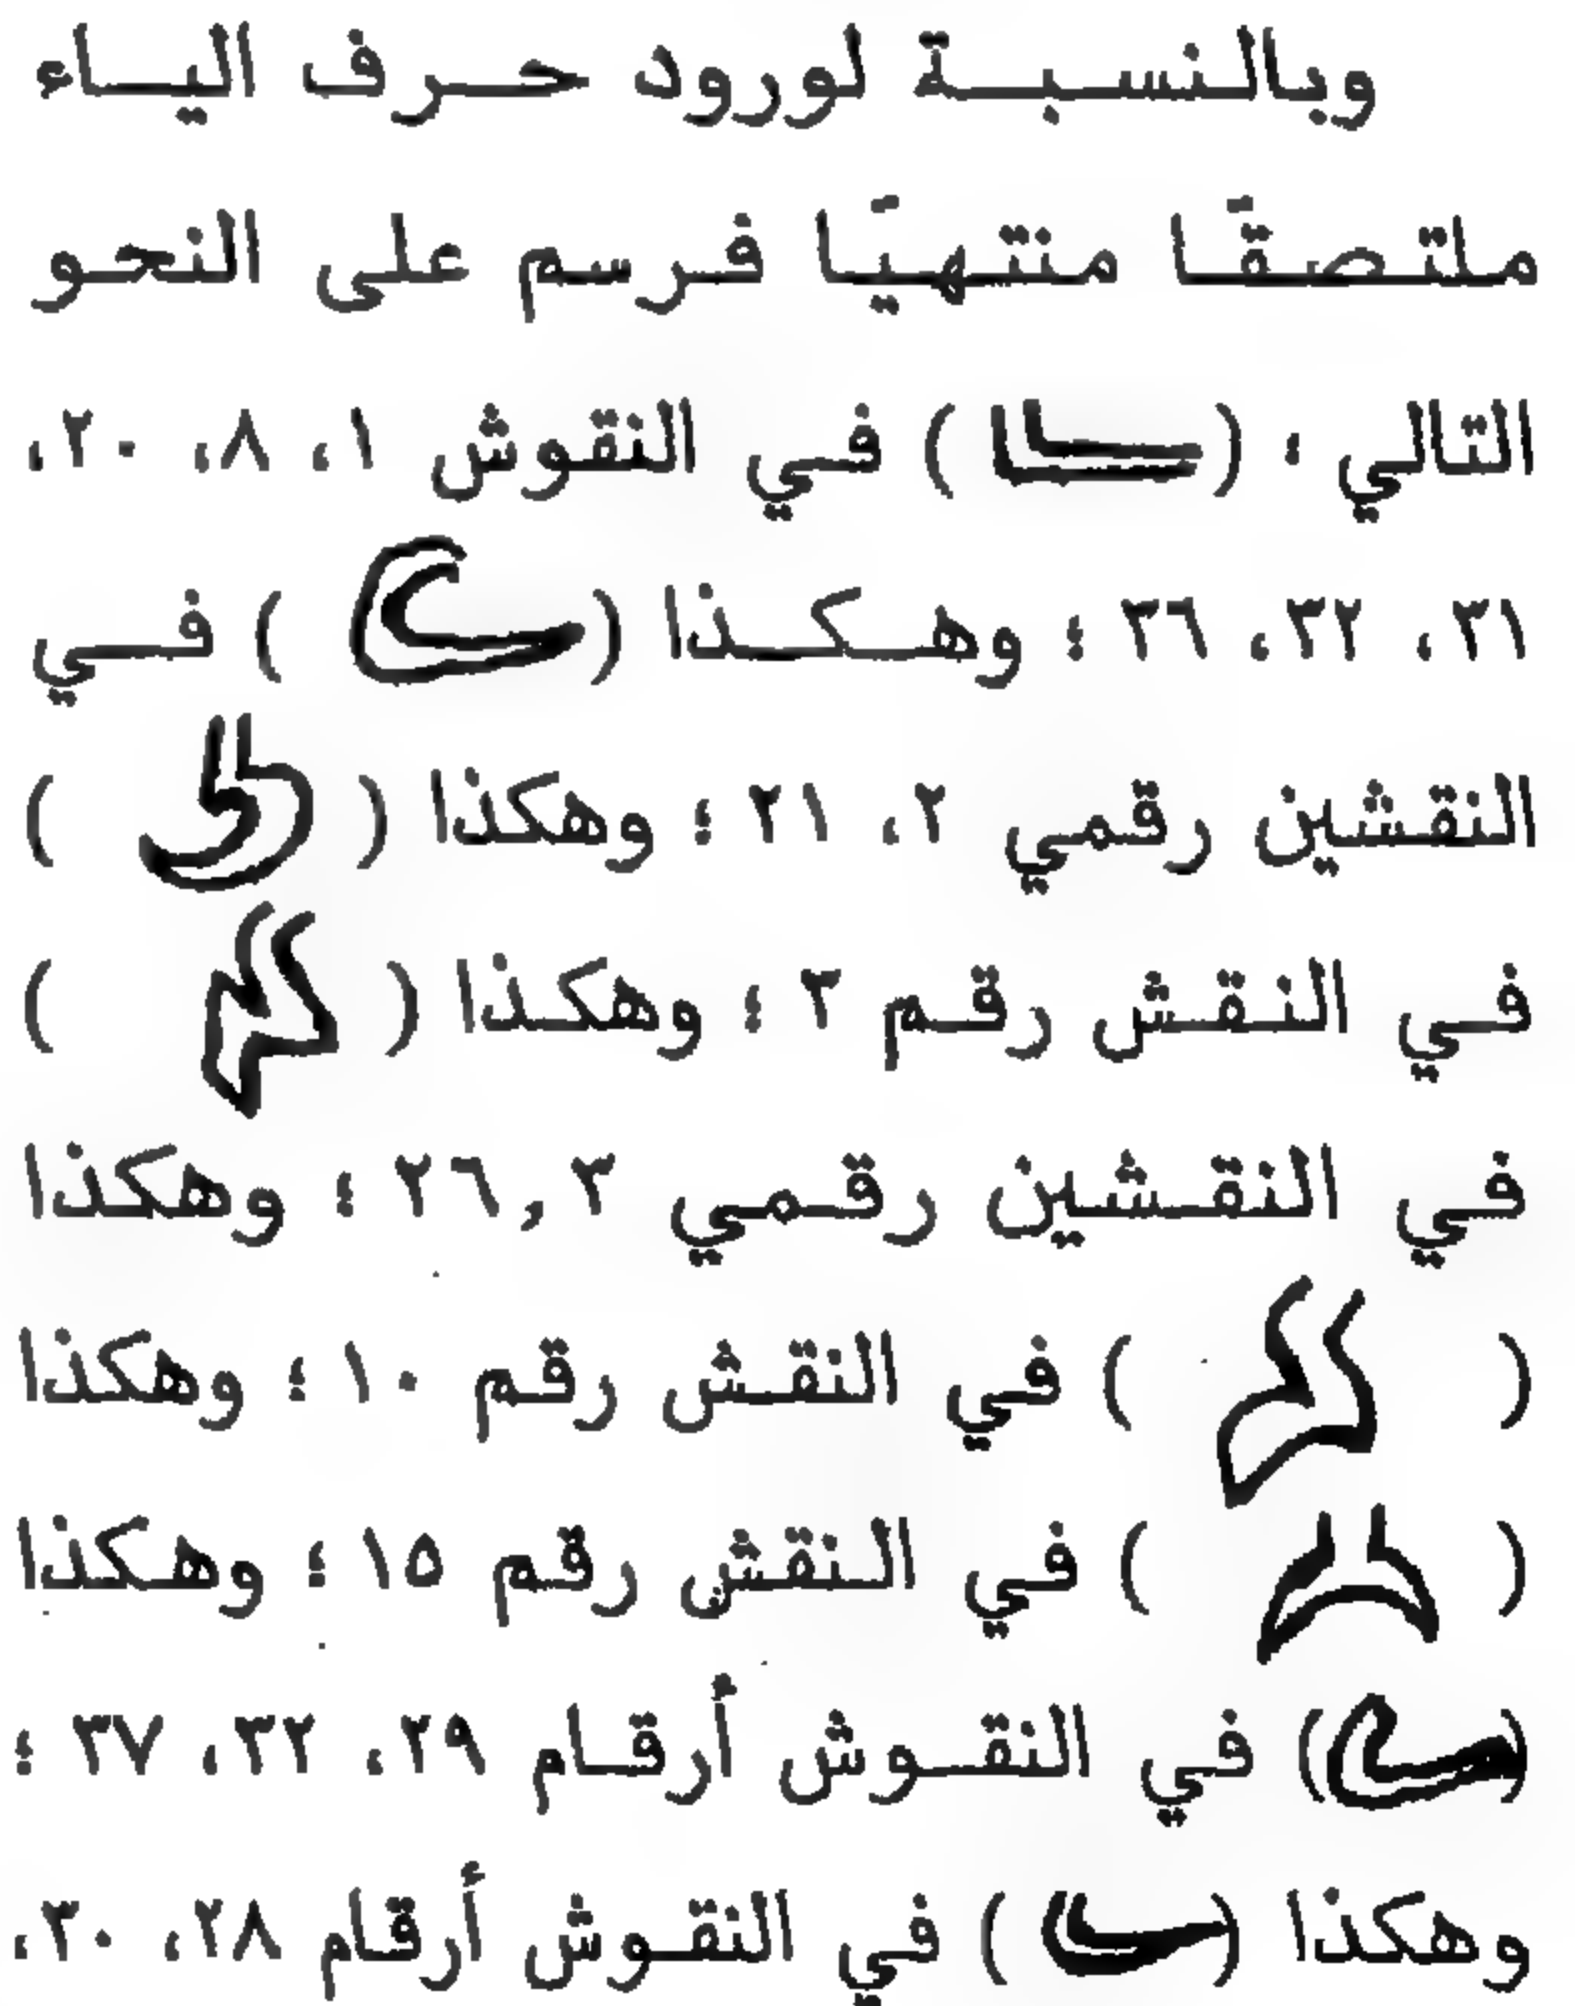 وبالنسبة لورود حرف الياء
ملتصقًا منتهيًا فرسم على النحو
التالي ؛ ( ) في النقوش ١، ٨، ٢٠،
٣١، ٣٢، ٣٦ ؛ وهكذا ( ) في
النقشين رقمي ٢، ٢١ ؛ وهكذا ( )
في النقش رقم ٣ ؛ وهكذا ( )
في النقشين رقمي ٣ ,٢٦ ؛ وهكذا
( ) في النقش رقم ١٠ ؛ وهكذا
( ) في النقش رقم ١٥ ؛ وهكذا
( ) في النقوش أرقام ٢٩، ٣٢، ٣٧ ؛
وهكذا ( ) في النقوش أرقام ٢٨، ٣٠،